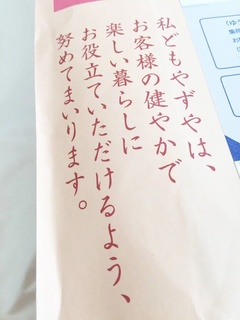 私どもやずやは、
お客様の健やかで
楽しい暮らしに
お役立ていただけるよう、
努めてまいります。